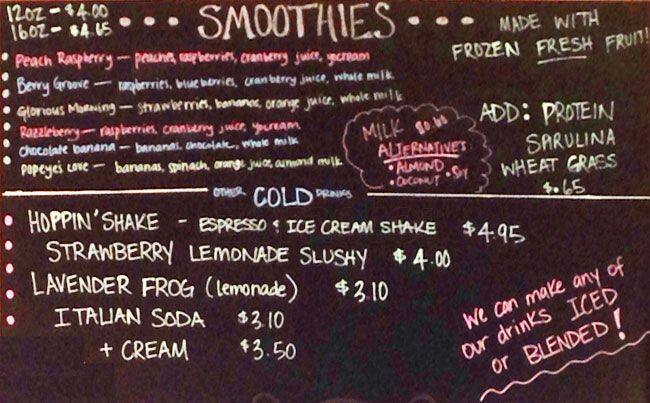 12oz - $4.00
16oz - $4.65
SMOOTHIES
MADE WITH
FROZEN FRESH FRUIT!
Peach Raspberry — peaches, raspberries, cranberry juice, yocream
Berry Groove — raspberries, blueberries, cranberry juice, whole milk
Glorious Morning — strawberries, bananas, orange juice, whole milk
Razzleberry — raspberries, cranberry juice, yocream
Chocolate banana — bananas, chocolate, whole milk
Popeye's Love — bananas, spinach, orange juice, almond milk
MILK $0.60
ALTERNATIVES
• ALMOND
• COCONUT • SOY
ADD: PROTEIN
SPIRULINA
WHEAT GRASS
$.65
OTHER COLD DRINKS
HOPPIN' SHAKE - ESPRESSO & ICE CREAM SHAKE $4.95
STRAWBERRY LEMONADE SLUSHY $4.00
LAVENDER FROG (lemonade) $3.10
ITALIAN SODA $3.10
+ CREAM $3.50
We can make any of
our drinks ICED
or BLENDED!